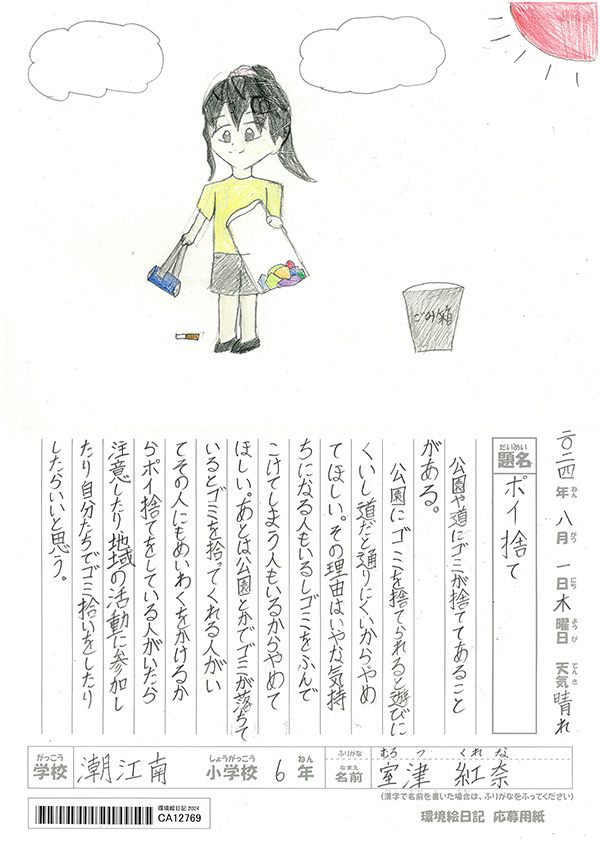 ごみ箱
二〇二四年 八月 一日 木曜日 天気 晴れ
ねん がつ にち ようび てんき
だいめい
題名 ポイ捨て
公園や道にゴミが捨ててあること
がある。
公園にゴミを捨てられると遊びに
くいし道だと通りにくいからやめ
てほしい。その理由はいやな気持
ちになる人もいるしゴミをふんで
こけてしまう人もいるからやめて
ほしい。あとは公園とかでゴミが落ちて
いるとゴミを拾ってくれる人がい
てその人にもめいわくをかけるか
らポイ捨てをしている人がいたら
注意したり地域の活動に参加し
たり自分たちでゴミ拾いをしたり
したらいいと思う。
がっこう しょうがっこう ねん ふりがな むろ つ くれ な
学校 潮江南 小学校 6年 なまえ 名前 室津 紅奈
(漢字で名前を書いた場合は、ふりがなをふってください)
環境絵日記 2024
CA12769
環境絵日記 応募用紙